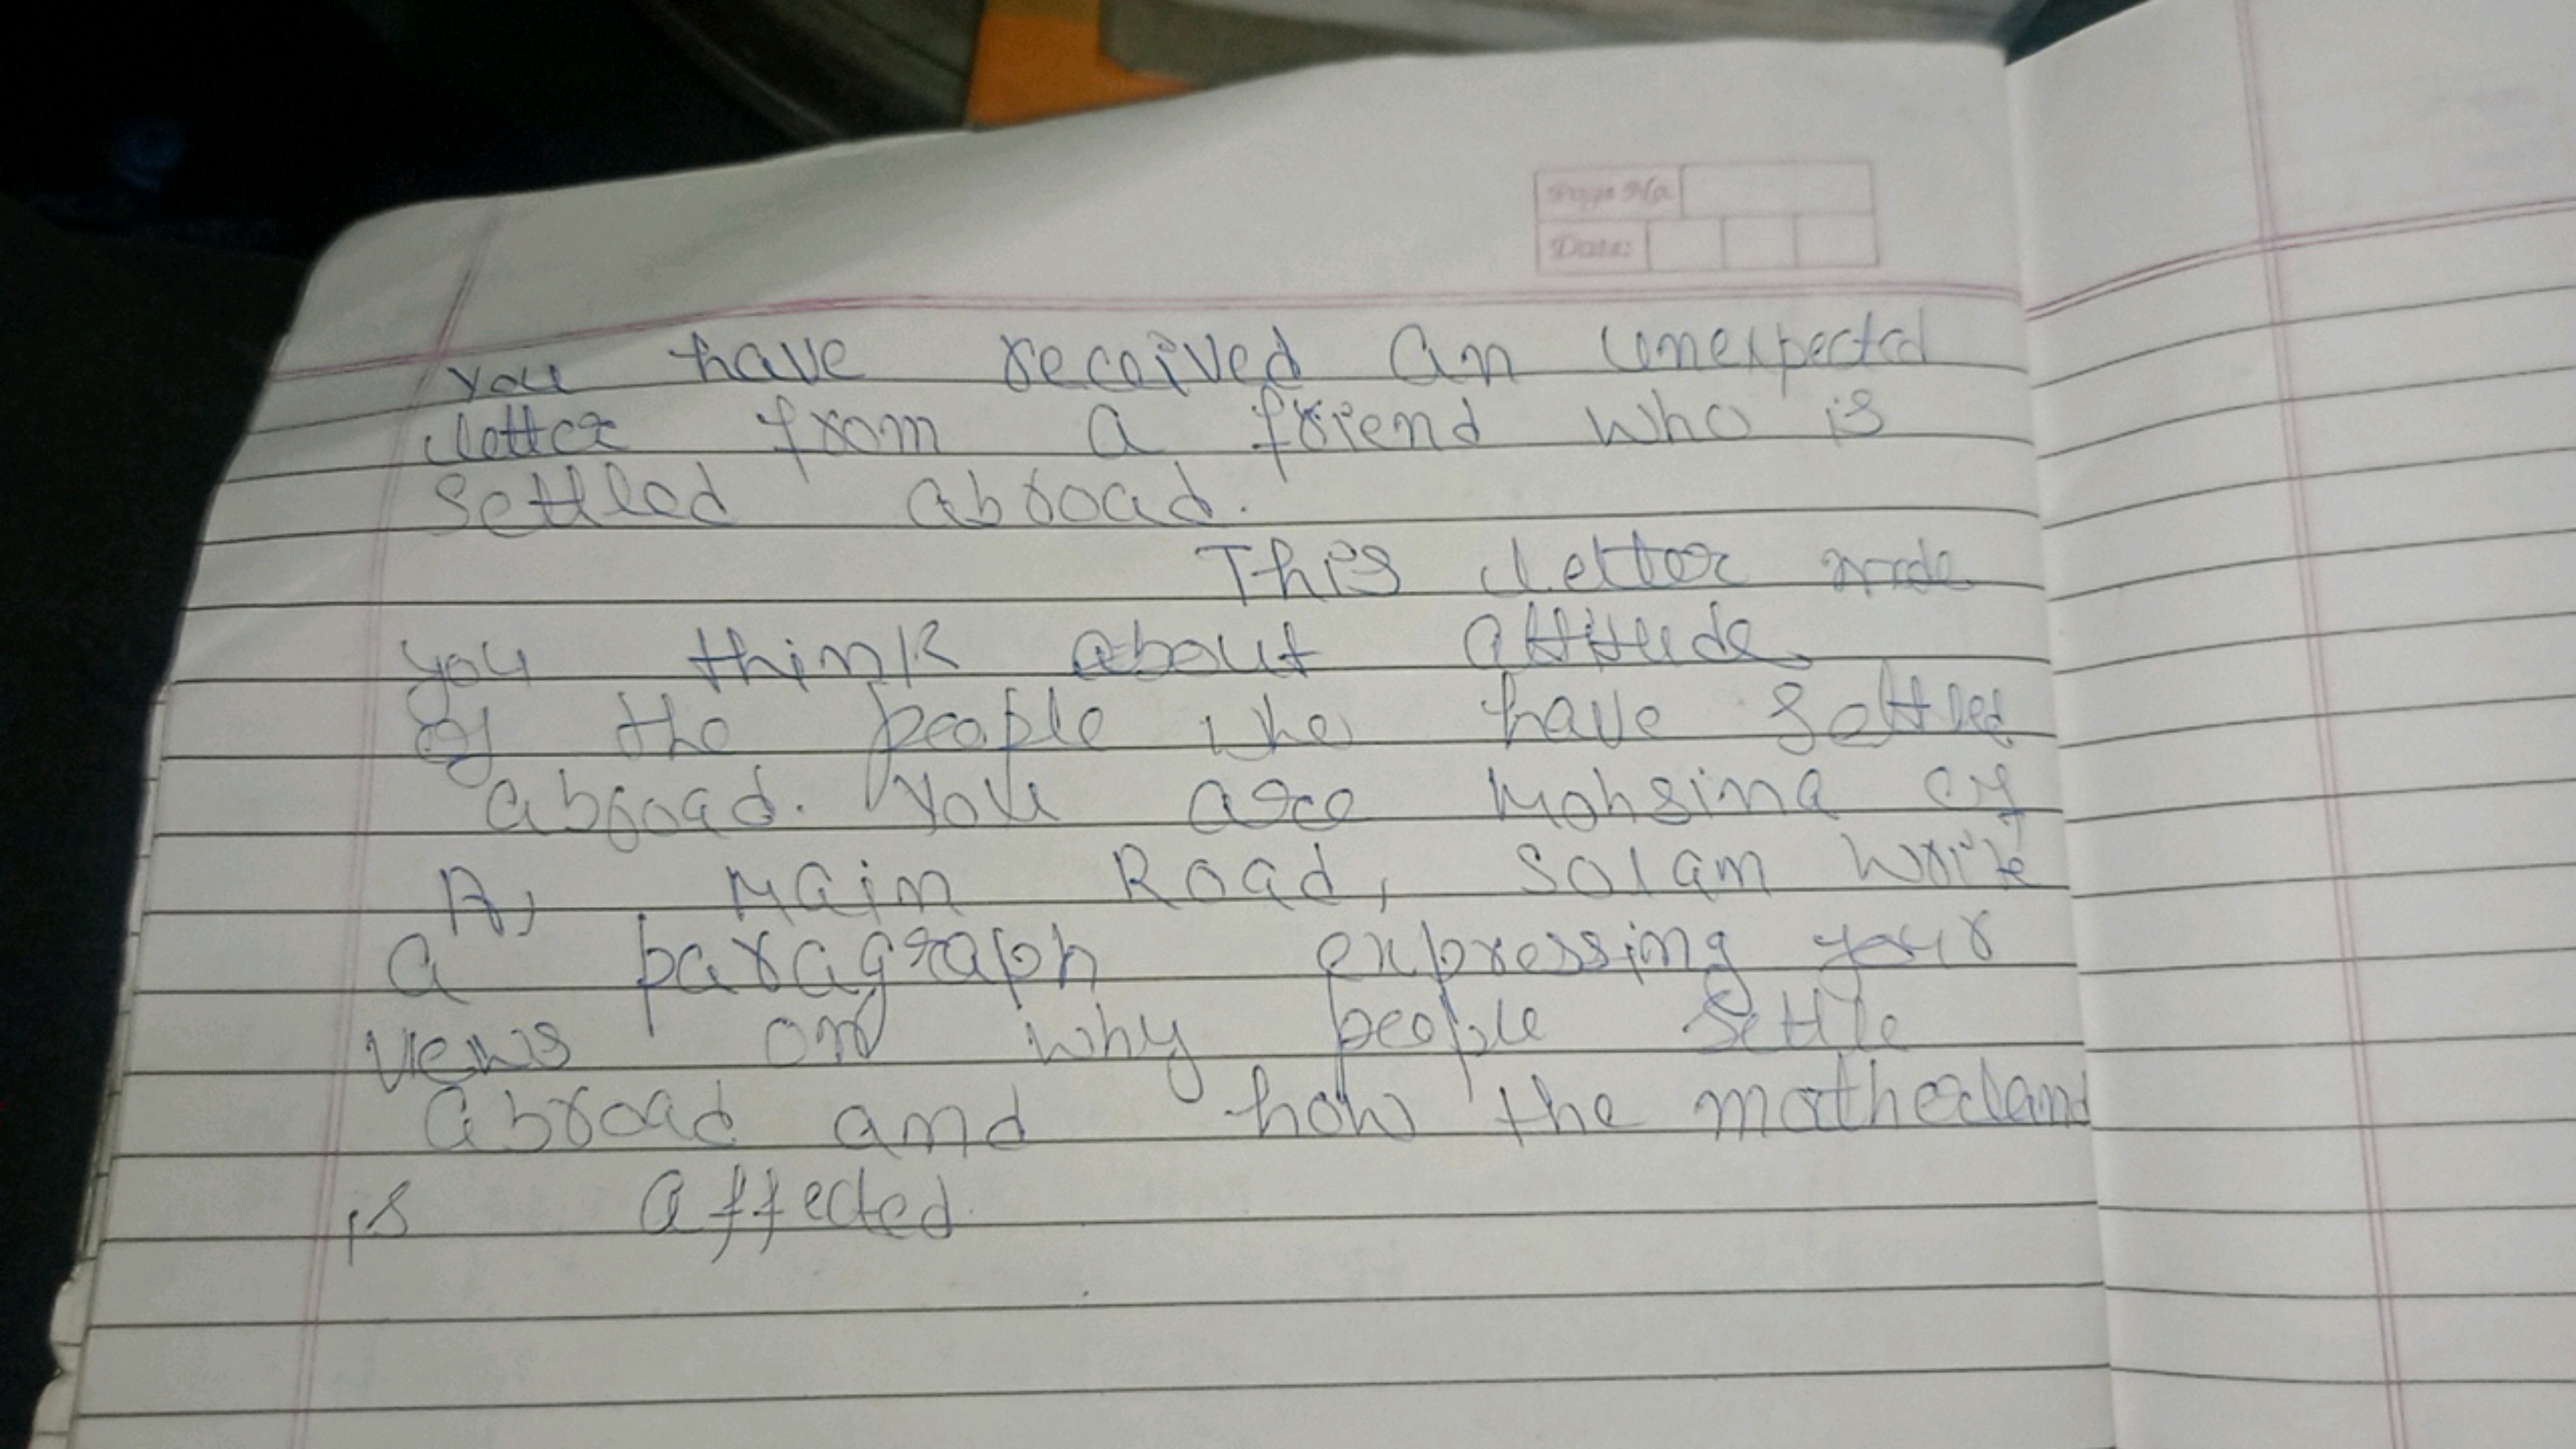 Page No.
Date:
you have received an unexpected
letter from a friend who is
settled abroad.
This letter made
you think about attitude
of the people who have settled
abroad. You are Mohsina of
A, Main Road, Solam write
a paragraph expressing your
views on why people settle
abroad and how the motherland
is affected.